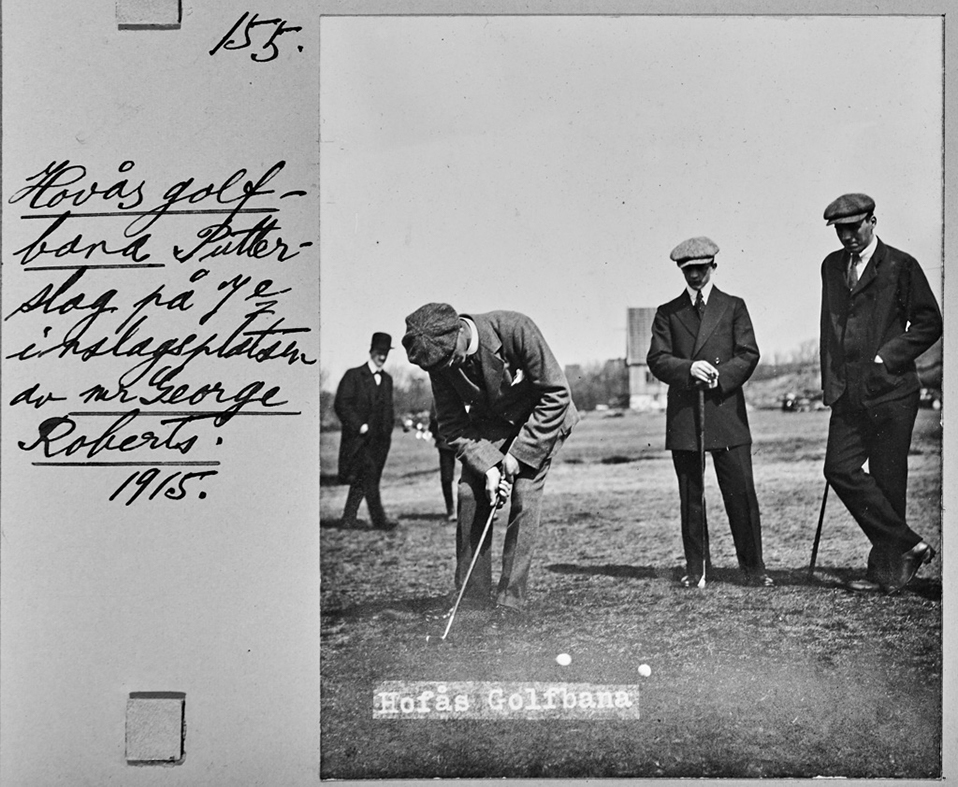 155.
Hovås golf-
bana Putter-
slag på 7e
inslagsplatsen
av mr George
Roberts.
1915.
Hofås Golfbana